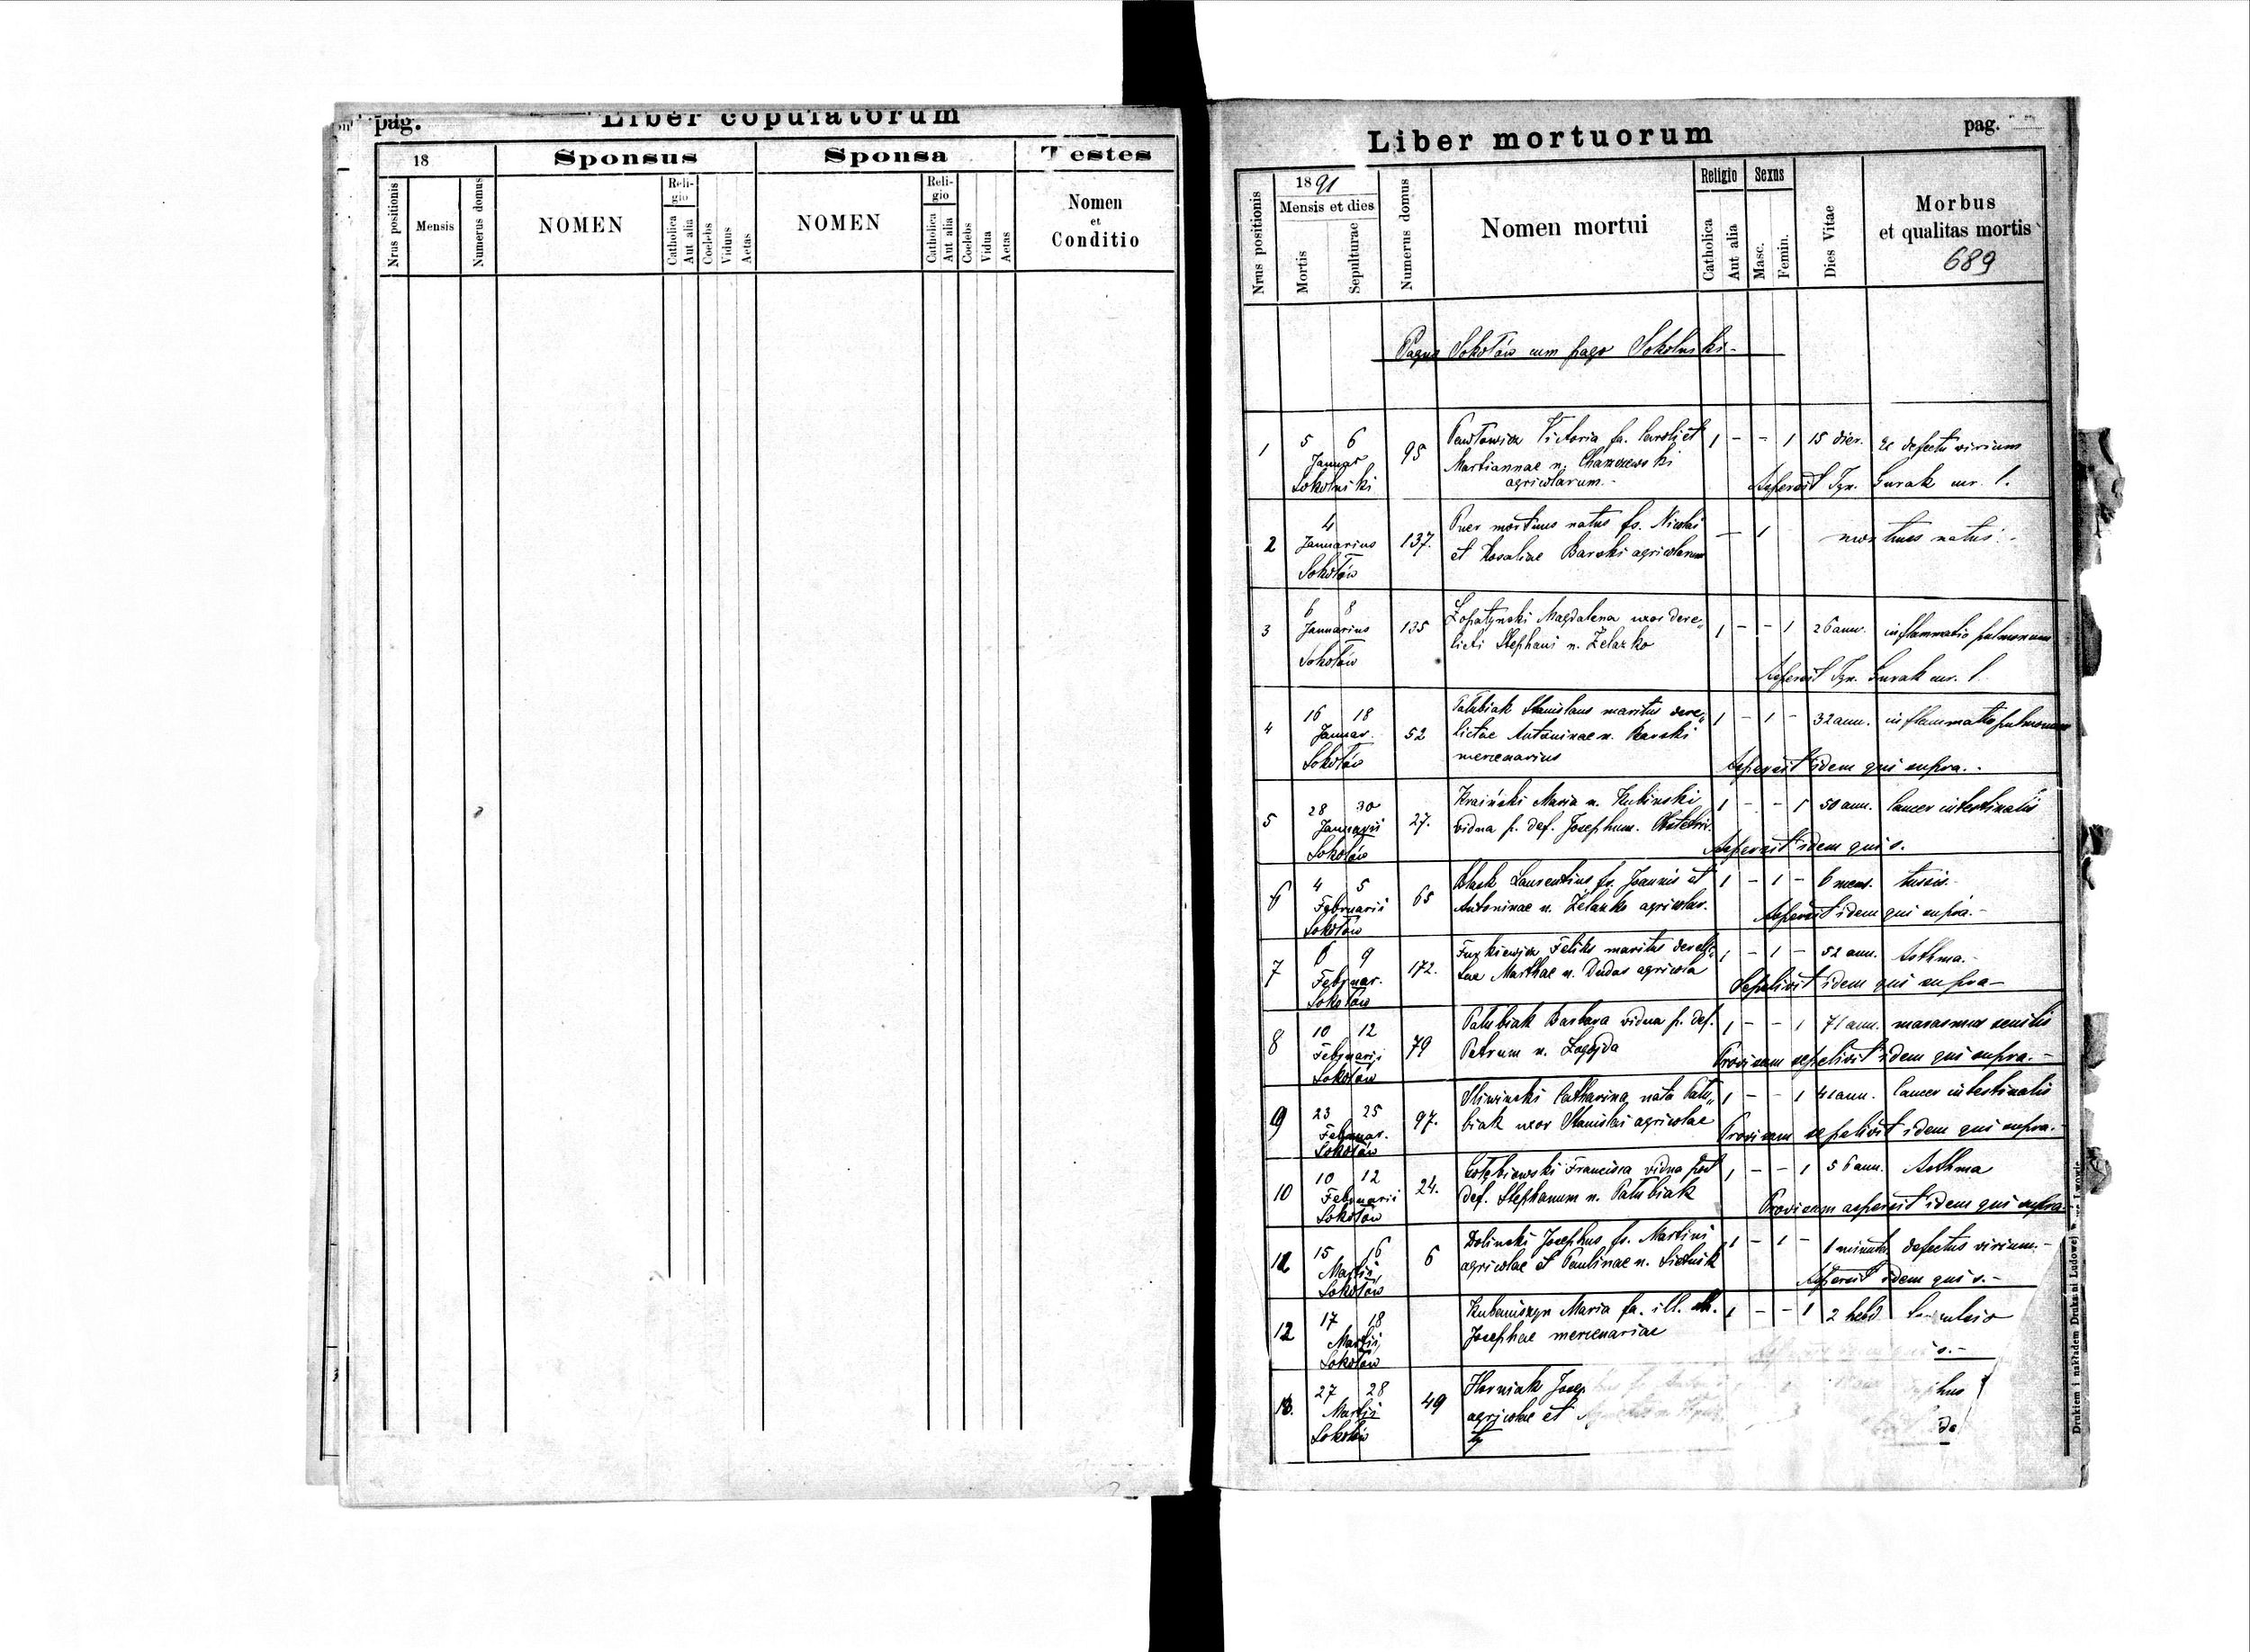 pag.
Liber copulatorum
18
Sponsus
Sponsa
Testes
Nrus positionis
Mensis
Numerus domus
NOMEN
Religio
Catholica
Aut alia
Coelebs
Viduus
Aetas
NOMEN
Religio
Catholica
Aut alia
Coelebs
Vidua
Aetas
Nomen
et
Conditio
Liber mortuorum
pag.
Nrus positionis
1891
Mensis et dies
Mortis
Sepulturae
Numerus domus
Nomen mortui
Religio
Catholica
Aut alia
Sexus
Masc.
Femin.
Dies Vitae
Morbus
et qualitas mortis
689
Pagus Sokołów cum pago Sokolniki -
1 5 6 95 Pawłowicz Victoria fa. Caroli et 1 - - 1 15 dier. ex defectu virium
Januar Martiannae n.
Sokolniki agricolarum.- Aspersit Ign. Gurak cur. l.
4
2 Januarius 137. Puer mortuus natus fs. Nicolai - 1 mortuus natus.-
Sokołów et Rosaliae Barski agricolarum
6 8
3 Januarius 135 Łopatynski Magdalena uxor dere„ 1 - - 1 26 ann. inflammatio pulmonum
Sokołów licti Stephani n. Żelazko
Aspersit Ign. Gurak cur. l.
4 16 18 52 Patubiak Stanislaus maritus dere„ 1 - 1 - 32 ann. inflammatio pulmonum
Januar. lictae Antoninae n. Barski
Sokołów mercenarius Aspersit idem qui supra.-
5 28 30 27. Kraiński Maria n. Kubinski 1 - - 1 50 ann. Cancer intestinalis
Januarii vidua p. def. Josephum. Obstetrix.
Sokołów Aspersit idem qui s.
6 4 5 65 Laurentius fs. Joannis et 1 - 1 - 6 mens. tussis.-
Februarii Antoninae n. Żelazko agricolar.
Sokołów Aspersit idem qui supra.-
7 6 9 172. Feliks maritus derelic„ 1 - 1 - 52 ann. Asthma.-
Februar. tae Marthae n. Dudas agricola
Sokołów Sepelivit idem qui supra-
8 10 12 79 Patubiak Barbara vidua p. def. 1 - - 1 71 ann. marasmus senilis
Februarii Petrum n.
Sokołów Provisam sepelivit idem qui supra.-
9 23 25 97. Sliwinski Catharina nata Patu„ 1 - - 1 41 ann. Cancer intestinalis
Februar. biak uxor Stanislai agricolae
Sokołów Provisam sepelivit idem qui supra.-
10 10 12 24. Gołębiowski Francisca vidua post 1 - - 1 56 ann. Asthma
Februarii def. Stephanum n. Patubiak
Sokołów Provisam aspersit idem qui supra.
15 16 6 Dolinski Josephus fs. Martini 1 - 1 - 1 minut. defectus virium.-
Martii agricolae et Paulinae n.
Sokołów Aspersit idem qui s.-
12 17 18 Maria fa. ill. 1 - - 1 2 hebd
Martii Josephae mercenariae
Sokołów s.-
13. 27 28 49 Horniak
Martii agricolae et
Sokołów
Drukiem i nakładem Drukarni Ludowej we Lwowie